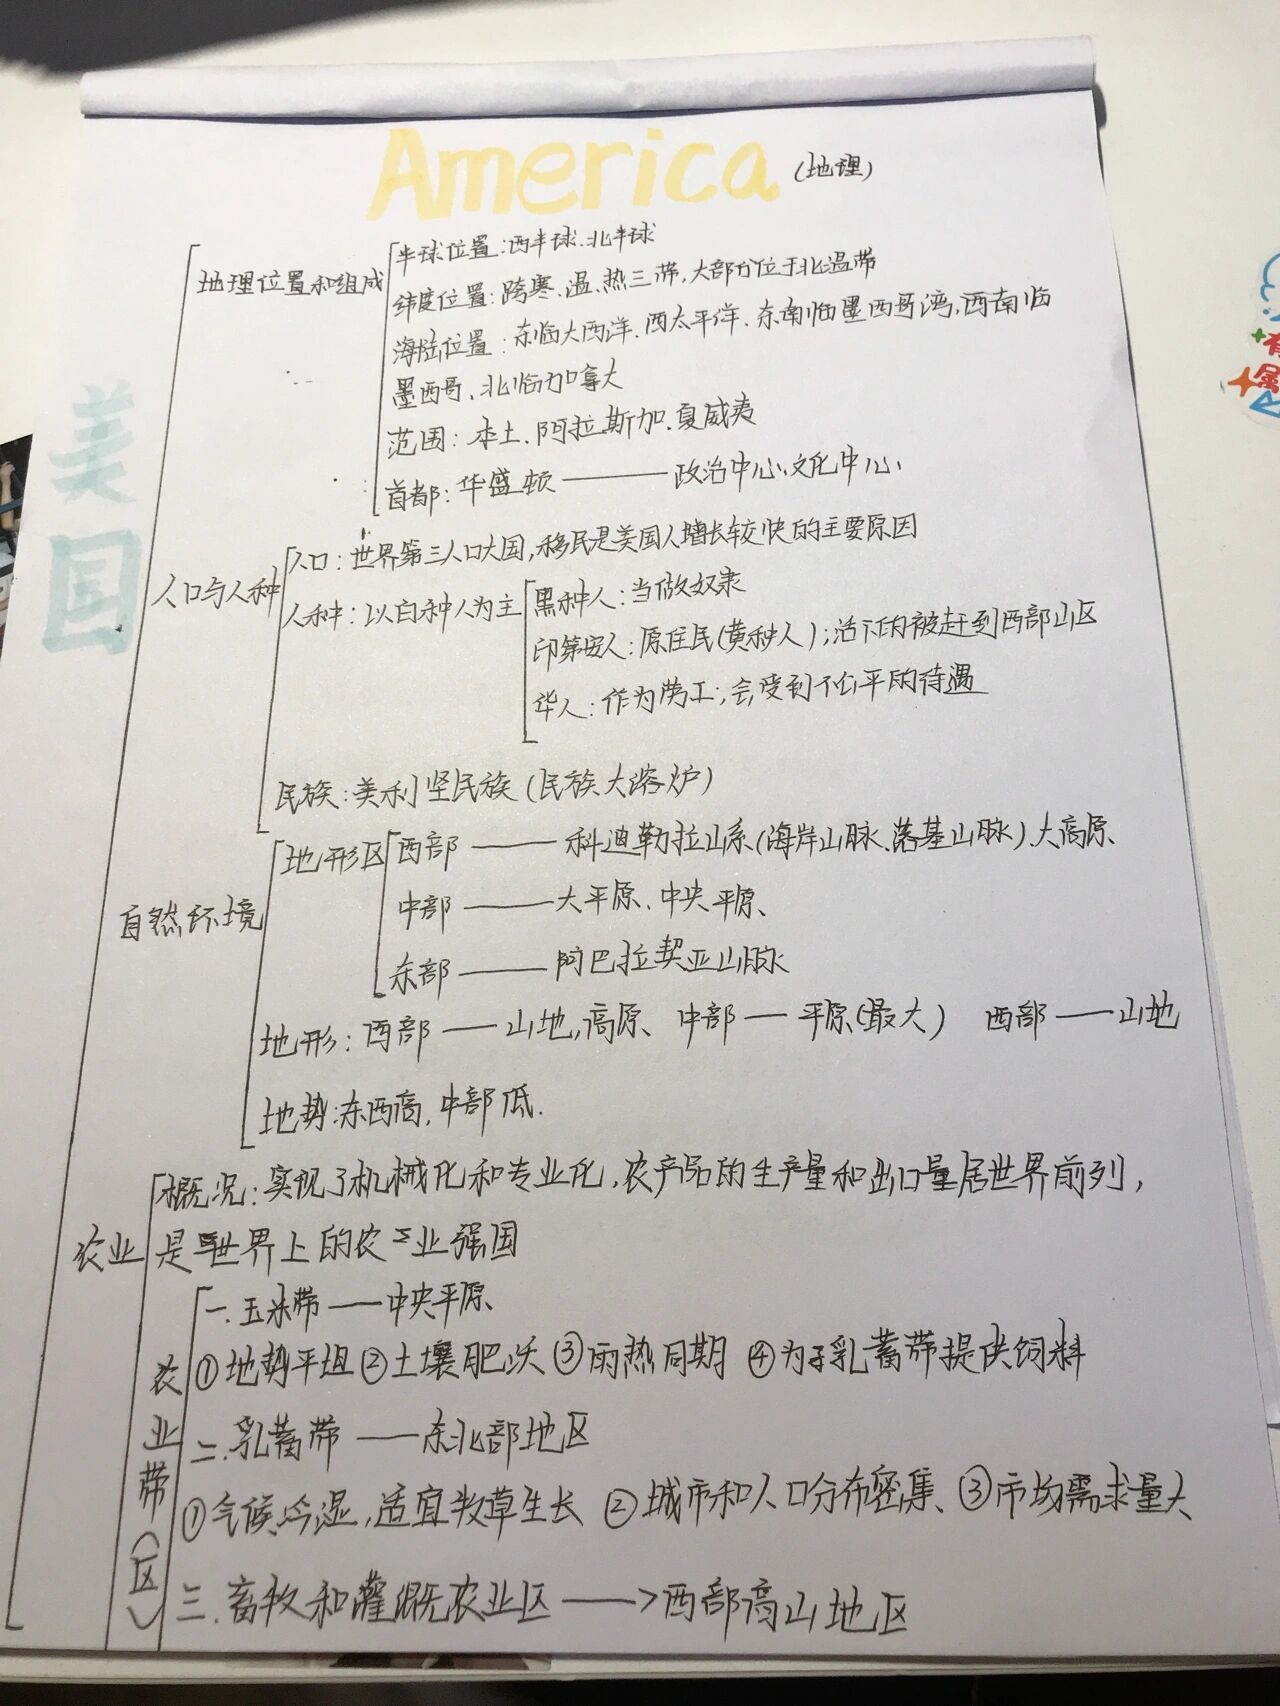 America (地理)
美国
地理位置和组成
半球位置:西半球、北半球
纬度位置:跨寒、温、热三带,大部分位于北温带
海陆位置:东临大西洋、西太平洋、东南临墨西哥湾,西南临
墨西哥、北临加拿大
范围:本土、阿拉斯加、夏威夷
首都:华盛顿——政治中心、文化中心、
人口与人种
人口:世界第三人口大国,移民是美国人增长较快的主要原因
人种:以白种人为主
黑种人:当做奴隶
印第安人:原住民(黄种人);活下的被赶到西部山区
华人:作为劳工;会受到不公平的待遇
民族:美利坚民族(民族大熔炉)
自然环境
地形区
西部——科迪勒拉山系(海岸山脉、落基山脉)大高原、
中部——大平原、中央平原、
东部——阿巴拉契亚山脉
地形:西部——山地,高原、中部——平原(最大) 西部——山地
地势:东西高,中部低.
农业
概况:实现了机械化和专业化,农产品的生产量和出口量居世界前列,
是世界上的农工业强国
农业带(区)
一.玉米带——中央平原、
①地势平坦②土壤肥沃③雨热同期 ④为了乳畜带提供饲料
二.乳畜带——东北部地区
①气候冷湿,适宜牧草生长 ②城市和人口分布密集、③市场需求量大
三.畜牧和灌溉农业区——>西部高山地区
有
属